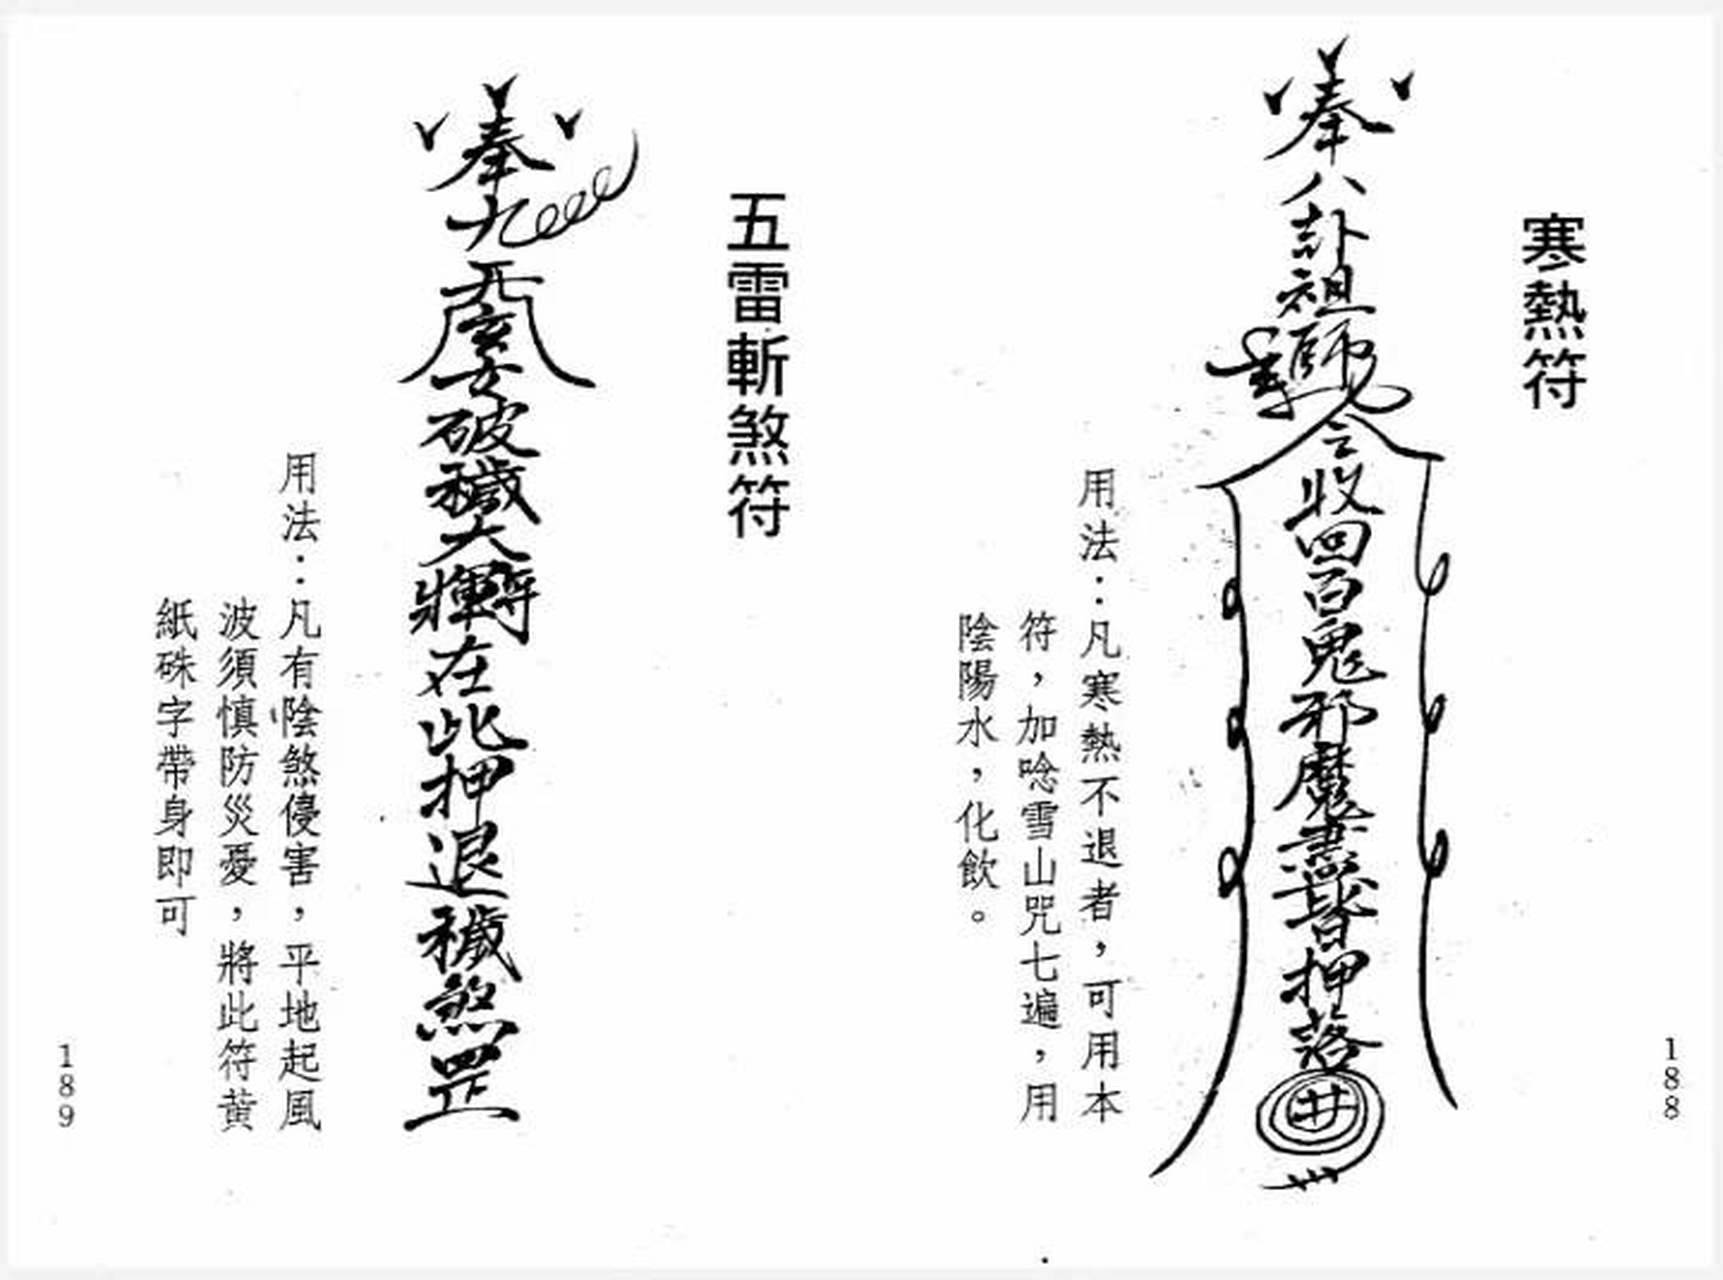 寒熱符
奉八卦祖師令收回百鬼邪魔盡皆押落井
用法：凡寒熱不退者，可用本
符，加唸雪山咒七遍，用
陰陽水，化飲。
188
五雷斬煞符
奉九天玄女破穢大將軍在此押退穢煞罡
用法：凡有陰煞優害，平地起風
波須慎防災憂，將此符黄
紙硃字帶身即可
189